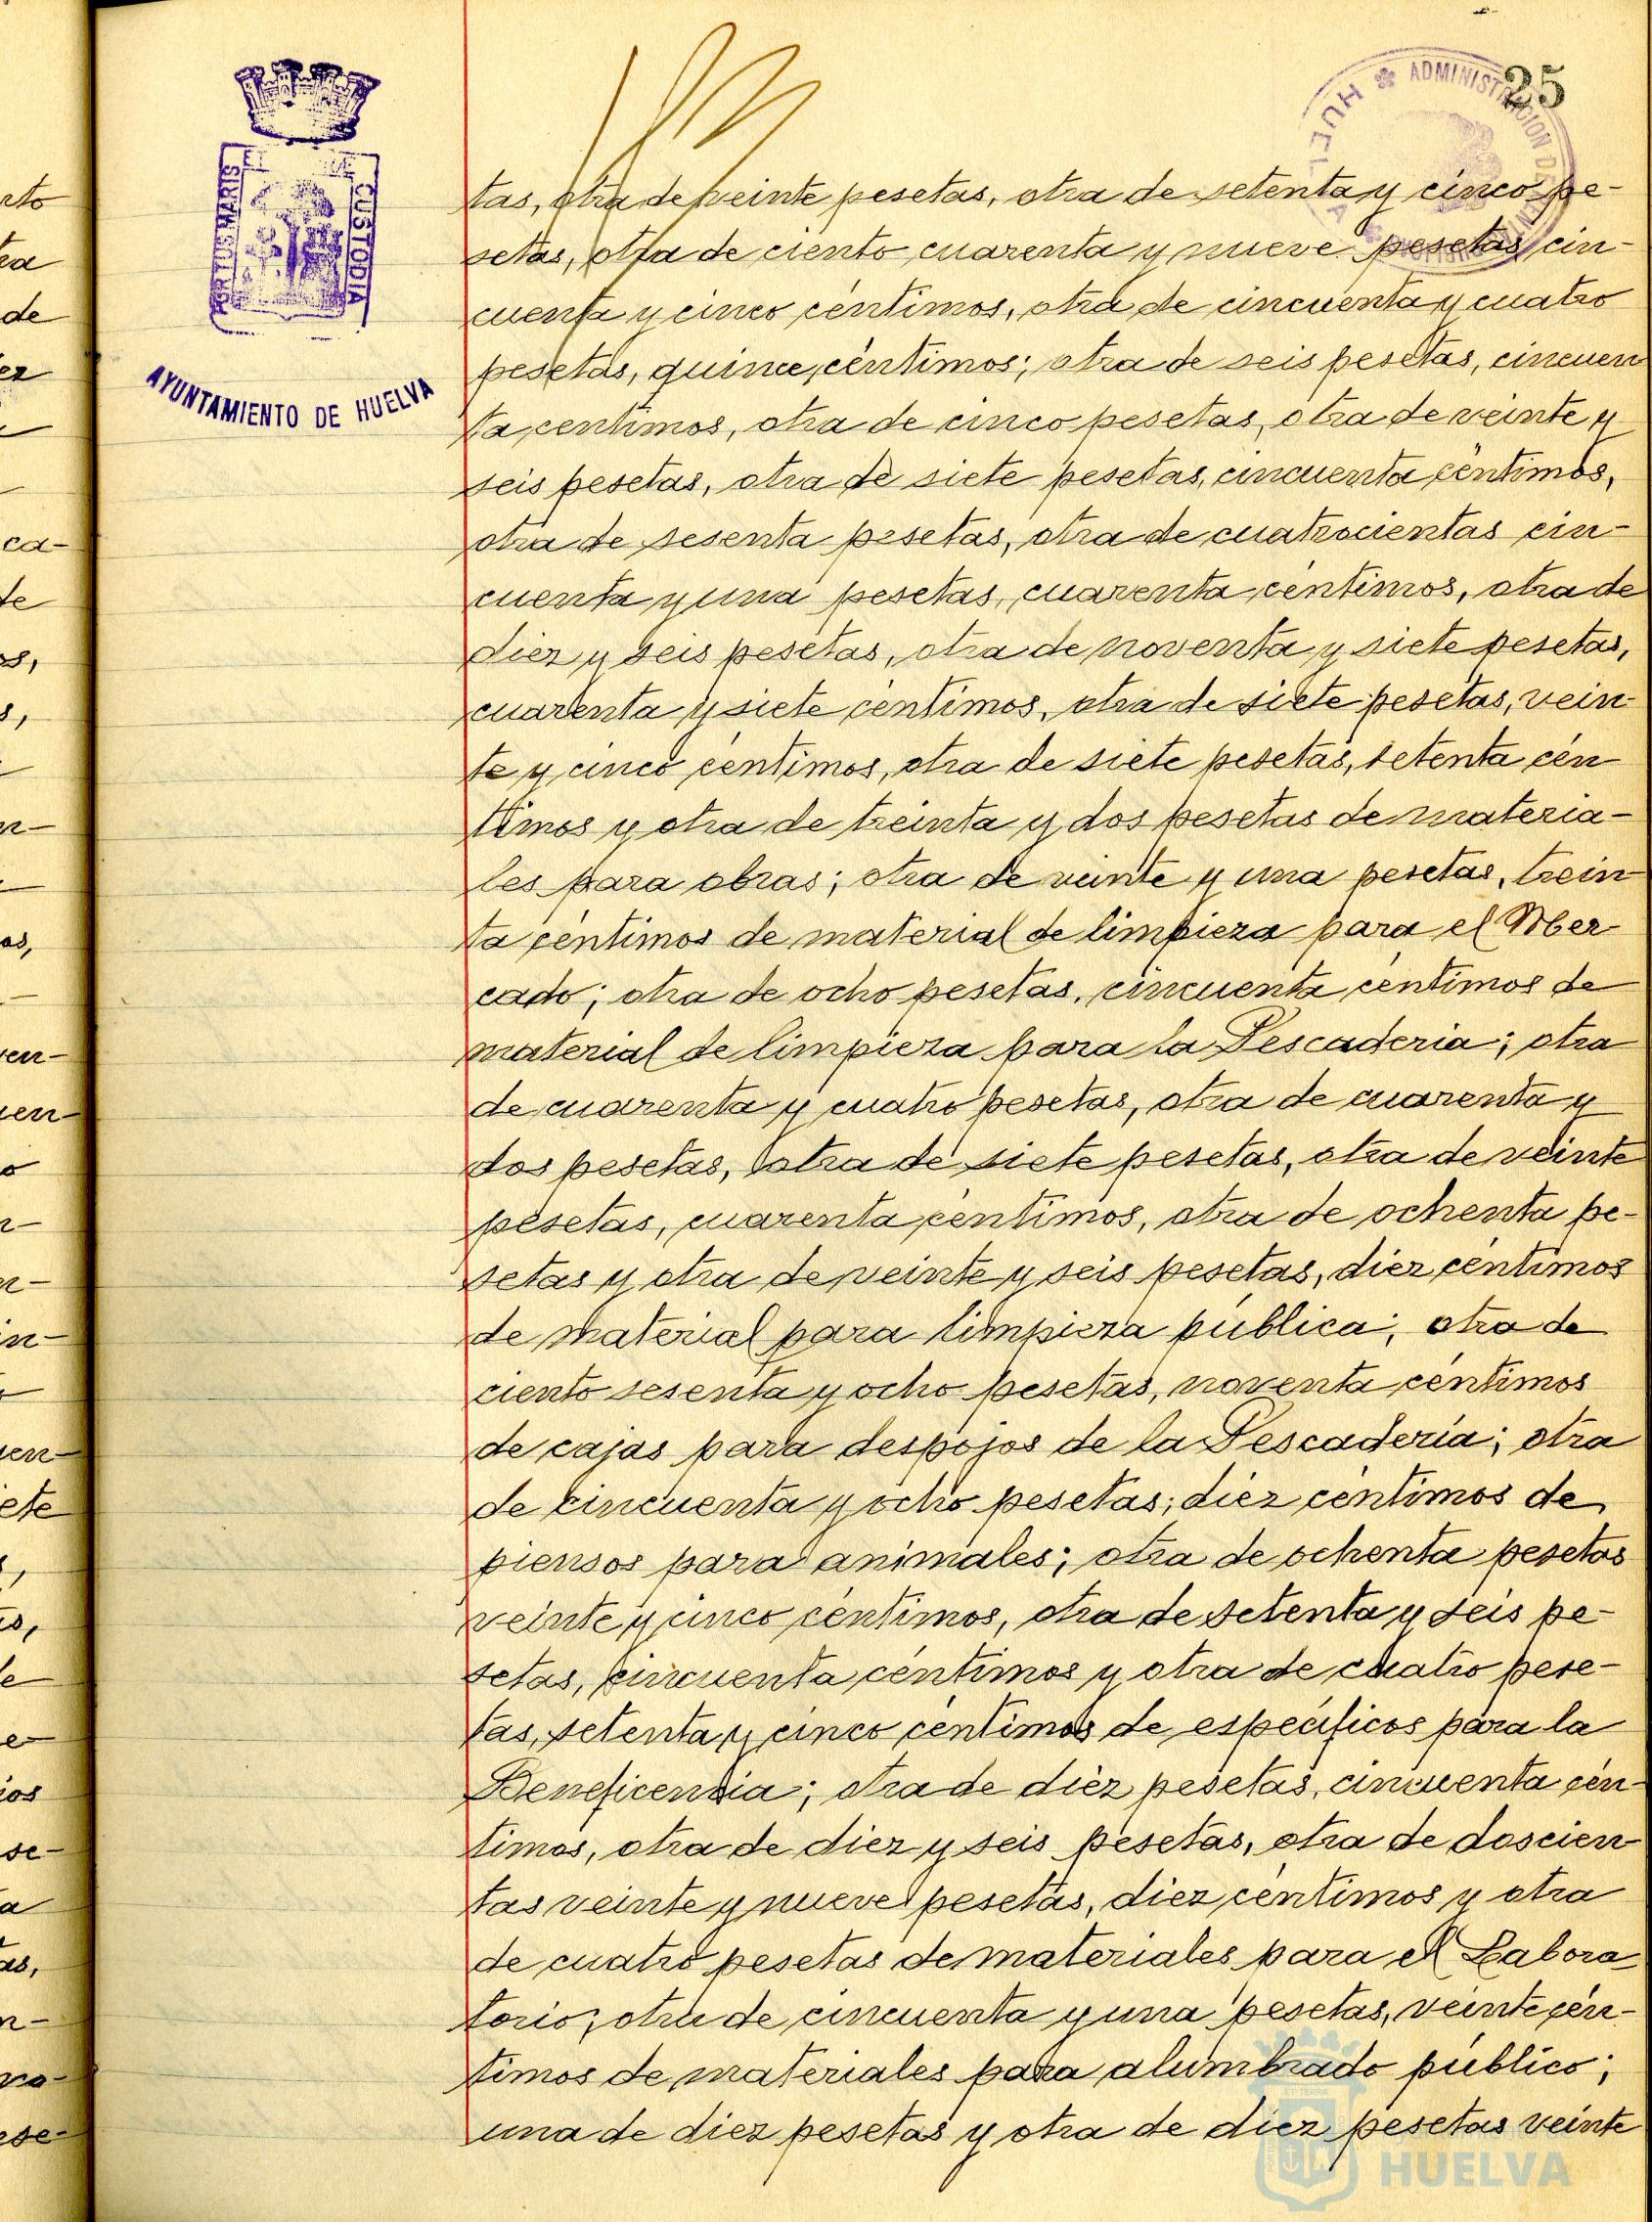 25
ADMINISTRACION DE
HUELVA
PORTUS MARIS
ET
CUSTODIA
AYUNTAMIENTO DE HUELVA
tas, otra de veinte pesetas, otra de setenta y cinco pe-
setas, otra de ciento cuarenta y nueve pesetas cin-
cuenta y cinco céntimos, otra de cincuenta y cuatro
pesetas, quince céntimos; otra de seis pesetas, cincuen
ta centimos, otra de cinco pesetas, otra de veinte y
seis pesetas, otra de siete pesetas, cincuenta céntimos,
otra de sesenta pesetas, otra de cuatrocientas cin-
cuenta y una pesetas, cuarenta céntimos, otra de
diez y seis pesetas, otra de noventa y siete pesetas,
cuarenta y siete céntimos, otra de siete pesetas, vein-
te y cinco céntimos, otra de siete pesetas, setenta cén
timos y otra de treinta y dos pesetas de materia-
les para obras; otra de veinte y una pesetas, trein-
ta céntimos de material de limpieza para el Mer
cado; otra de ocho pesetas, cincuenta centimos de
material de limpieza para la Pescaderia; otra
de cuarenta y cuatro pesetas, otra de cuarenta y
dos pesetas, otra de siete pesetas, otra de veinte
pesetas, cuarenta céntimos, otra de ochenta pe-
setas y otra de veinte y seis pesetas, diez céntimos
de material para limpieza pública; otra de
ciento sesenta y ocho pesetas, noventa céntimos
de cajas para despojos de la Pescadería; otra
de cincuenta y ocho pesetas; diez céntimos de
piensos para animales; otra de ochenta pesetas
veinte y cinco céntimos, otra de setenta y seis pe-
setas, cincuenta céntimos y otra de cuatro pese-
tas, setenta y cinco céntimos de específicos para la
Beneficencia; otra de diez pesetas, cincuenta cén-
timos, otra de diez y seis pesetas, otra de doscien-
tas veinte y nueve pesetas, diez céntimos y otra
de cuatro pesetas de materiales para el Labora-
torio; otra de cincuenta y una pesetas, veinte cén-
timos de materiales para alumbrado público;
una de diez pesetas y otra de diez pesetas veinte
HUELVA